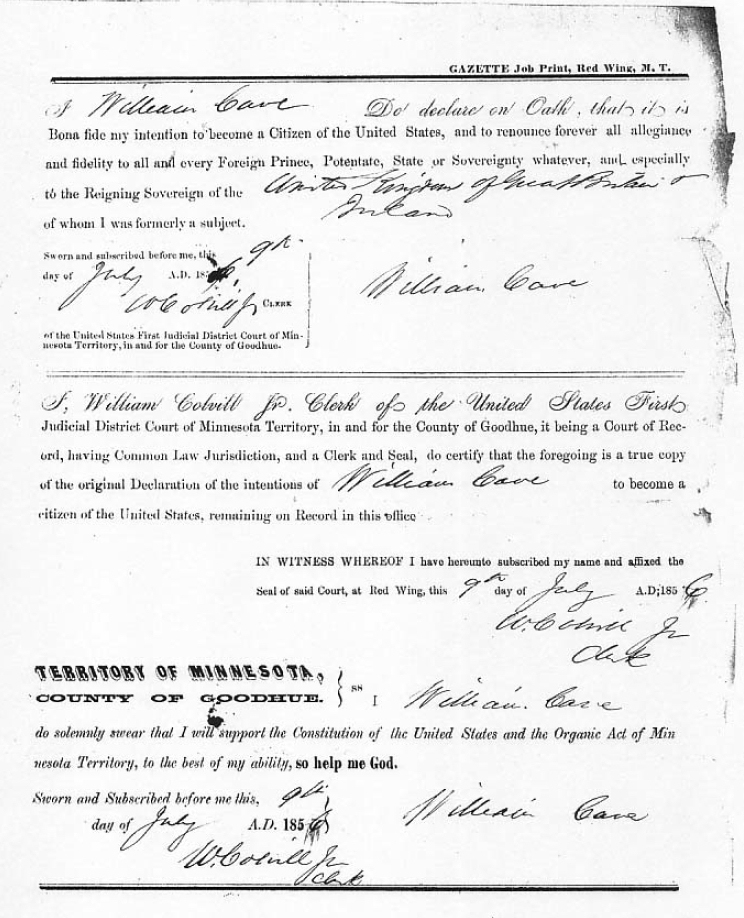 GAZETTE Job Print, Red Wing, M. T.
I William Cave Do declare on Oath, that it is
Bona fide my intention to become a Citizen of the United States, and to renounce forever all allegiance
and fidelity to all and every Foreign Prince, Potentate, State or Sovereignty whatever, and especially
to the Reigning Sovereign of the United Kingdom of Great Britain &
Ireland
of whom I was formerly a subject.
Sworn and subscribed before me, this 9th
day of July A.D. 1856,
W Colvill Jr CLERK
of the United States First Judicial District Court of Min-
nesota Territory, in and for the County of Goodhue.
William Cave
I, William Colvill Jr. Clerk of the United States First
Judicial District Court of Minnesota Territory, in and for the County of Goodhue, it being a Court of Rec-
ord, having Common Law Jurisdiction, and a Clerk and Seal, do certify that the foregoing is a true copy
of the original Declaration of the intentions of William Cave to become a
citizen of the United States, remaining on Record in this office
IN WITNESS WHEREOF I have hereunto subscribed my name and affixed the
Seal of said Court, at Red Wing, this 9th day of July A.D; 1856.
W. Colvill Jr
Clerk
TERRITORY OF MINNESOTA,
COUNTY OF GOODHUE. } ss I William Cave
do solemnly swear that I will support the Constitution of the United States and the Organic Act of Min
nesota Territory, to the best of my ability, so help me God.
Sworn and Subscribed before me this, 9th
day of July A.D. 1856
William Cave
W. Colvill Jr
Clerk